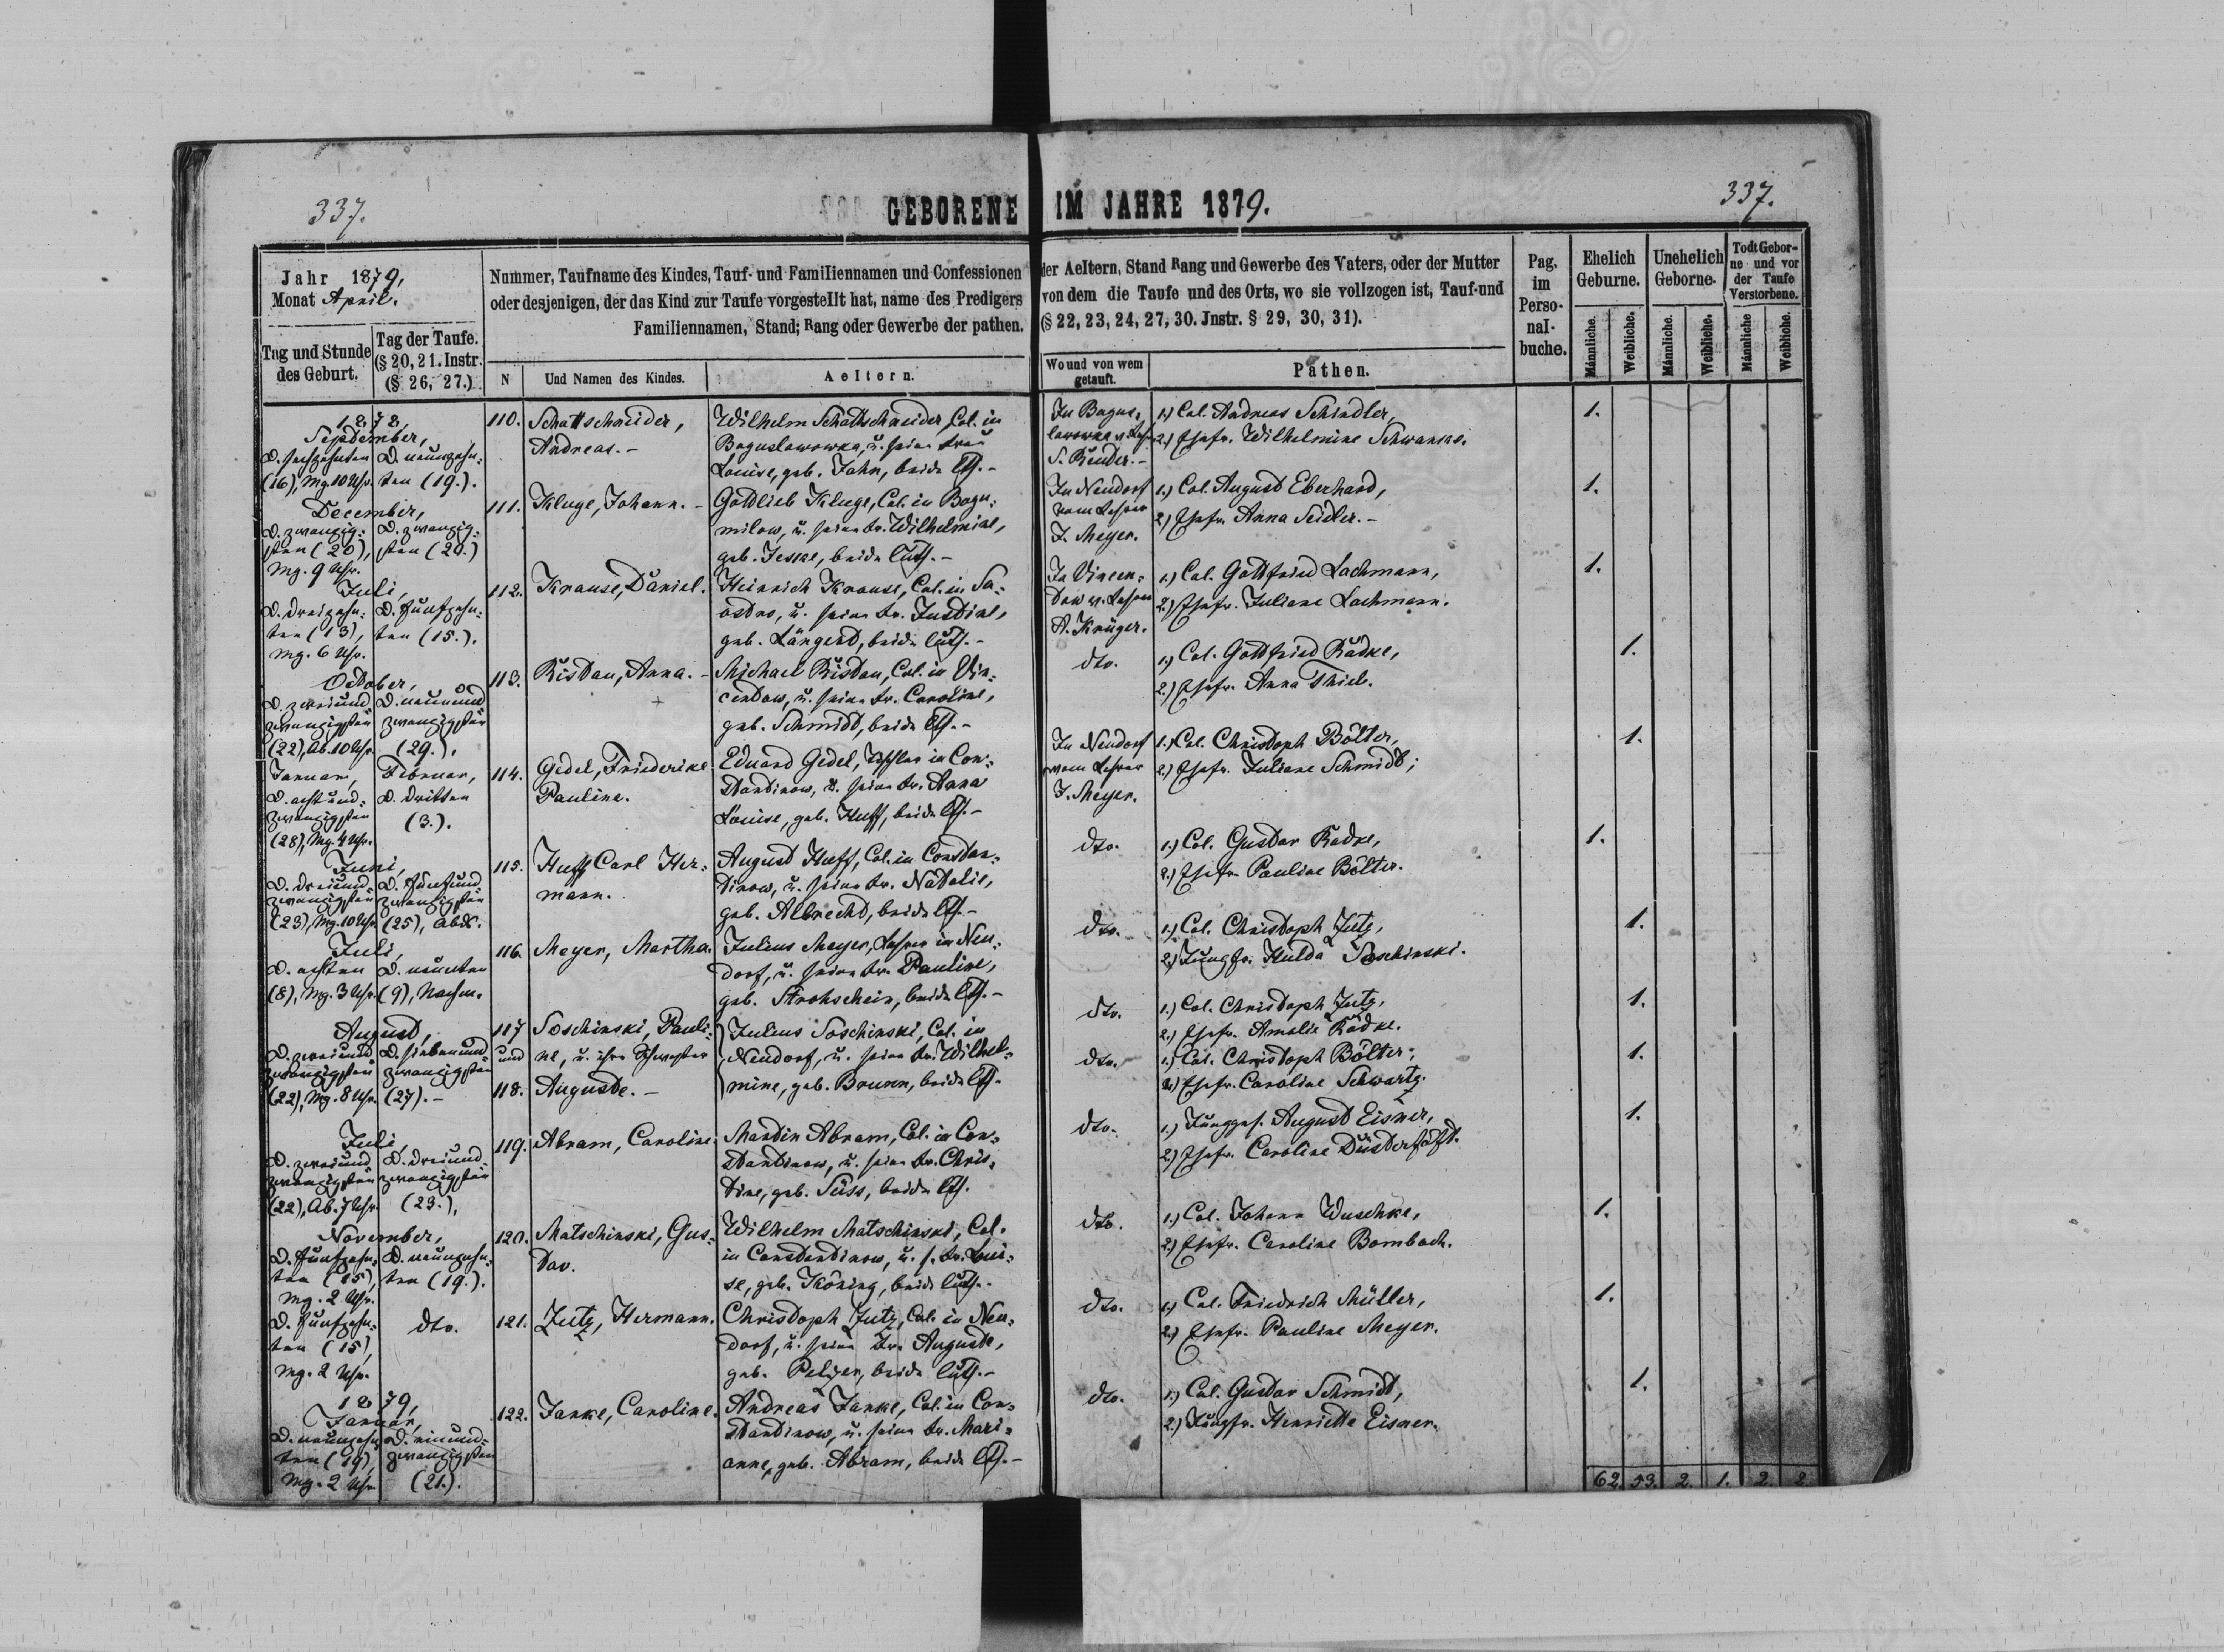 337.
GEBORENE IM JAHRE 1879.
337.
Jahr 1879,
Monat April.
Tag und Stunde
des Geburt.
Tag der Taufe.
(§ 20, 21. Instr.
(§ 26, 27.)
Nummer, Taufname des Kindes, Tauf- und Familiennamen und Confessionen
oder desjenigen, der das Kind zur Taufe vorgestellt hat, name des Predigers
Familiennamen, Stand; Rang oder Gewerbe der pathen.
N
Und Namen des Kindes.
Aeltern.
der Aeltern, Stand Rang und Gewerbe des Vaters, oder der Mutter
von dem die Taufe und des Orts, wo sie vollzogen ist, Tauf-und
(§ 22, 23, 24, 27, 30. Jnstr. § 29, 30, 31).
Wo und von wem
getauft.
Pathen.
Pag.
im
Perso-
nal-
buche.
Ehelich
Geburne.
Unehelich
Geborne.
Todt Gebor-
ne und vor
der Taufe
Verstorbene.
Männliche.
Weibliche.
Männliche.
Weibliche.
Männliche
Weibliche.
1878,
September,
D. sechzehnten
(16), Mg. 10 Uhr.
D. neunzehn-
ten (19.).
110.
Schattschneider,
Andreas. -
Wilhelm Schattschneider, Col. in
Boguslawowka, u. seine Frau
Louise, geb. Jahn, beide lth. -
In Bogus-
lawowka v. Lehr.
S. Render. -
1.) Col. Andreas Schindler,
2.) Ehefr. Wilhelmine Schwanke.
1.
December,
D. zwanzig-
sten (20),
Mg. 9 Uhr.
D. zwanzig-
sten (20.)
111.
Kluge, Johann. -
Gottlieb Kluge, Col. in Bogu-
milow, u. seine Fr. Wilhelmine,
geb. Jeske, beide luth. -
In Neudorf
vom Lehrer
J. Meyer.
1.) Col. August Eberhard,
2.) Ehefr. Anna Seidler. -
1.
Juli,
D. dreizehn-
ten (13),
Mg. 6 Uhr.
D. fünfzehn-
ten (15.).
112.
Krause, Daniel.
Heinrich Krause, Col. in Sa-
ostro, u. seine Fr. Justine,
geb. Längert, beide luth. -
In Vincen-
tow v. Lehrer
A. Krüger.
1.) Col. Gottfried Lachmann,
2.) Ehefr. Juliane Lachmann.
1.
October,
D. zweiund-
zwanzigsten
(22), Ab. 10 Uhr.
D. neunund-
zwanzigsten
(29.).
113.
Ristau, Anna. -
Michael Ristau, Col. in Vin-
centow, u. seine Fr. Caroline,
geb. Schmidt, beide lth. -
dto.
1.) Col. Gottfried Radke,
2.) Ehefr. Anna Thiele.
1.
Januar,
D. achtund-
zwanzigsten
(28), Mg. 4 Uhr.
Februar,
D. dritten
(3.).
114.
Gedel, Friederike
Pauline.
Eduard Gedel, Tischler in Con-
stantinow, u. seine Fr. Anna
Louise, geb. Huff, beide lth. -
In Neudorf
vom Lehrer
J. Meyer.
1.) Col. Christoph Bölter,
2.) Ehefr. Juliane Schmidt;
1.
Juni,
D. dreiund-
zwanzigsten
(23), Mg. 10 Uhr.
D. fünfund-
zwanzigsten
(25), Abds.
115.
Huff, Carl Her-
mann.
August Huff, Col. in Constan-
tinow, u. seine Fr. Natalie,
geb. Albrecht, beide lth. -
dto.
1.) Col. Gustav Radke,
2.) Ehefr. Pauline Bölter.
1.
Juli,
D. achten
(8), Mg. 3 Uhr.
D. neunten
(9), Nachm.
116.
Meyer, Martha.
Julius Meyer, Lehrer in Neu-
dorf, u. seine Fr. Pauline,
geb. Strohschein, beide lth. -
dto.
1.) Col. Christoph Jutz,
2.) Jungfr. Hulda Soschinski.
1.
August,
D. zweiund-
zwanzigsten
(22), Mg. 8 Uhr.
D. siebenund-
zwanzigsten
(27). -
117
und
118.
Soschinski, Pauli-
ne, u. ihre Schwester
Auguste. -
Julius Soschinski, Col. in
Neudorf, u. seine Fr. Wilhel-
mine, geb. Brunn, beide lth.
dto.
1.) Col. Christoph Jutz,
2.) Ehefr. Amalie Radke.
1.
dto.
1.) Col. Christoph Bölter;
2.) Ehefr. Caroline Schwartz.
1.
Juli,
D. zweiund-
zwanzigsten
(22), Ab. 7 Uhr.
D. dreiund-
zwanzigsten
(23.),
119.
Abram, Caroline.
Martin Abram, Col. in Con-
stantinow, u. seine Fr. Chris-
tine, geb. Süss, beide lth.
dto.
1.) Junggs. August Eisner,
2.) Ehefr. Caroline
1.
November,
D. fünfzehn-
ten (15),
Mg. 2 Uhr.
D. neunzehn-
ten (19.).
120.
Matschinski, Gus-
tav.
Wilhelm Matschinski, Col.
in Constantinow, u. s. Fr. Loui-
se, geb. Köning, beide luth. -
dto.
1.) Col. Johann Wuschke,
2.) Ehefr. Caroline Bombach.
1.
D. fünfzehn-
ten (15),
Mg. 2 Uhr.
dto.
121.
Jutz, Hermann.
Christoph Jutz, Col. in Neu-
dorf, u. seine Fr. Auguste,
geb. Pelzer, beide luth. -
dto.
1.) Col. Friedrich Müller,
2.) Ehefr. Pauline Meyer.
1.
1879,
Januar,
D. neunzehn-
ten (19),
Mg. 2 Uhr
D. einund-
zwanzigsten
(21.).
122.
Janke, Caroline.
Andreas Janke, Col. in Con-
stantinow, u. seine Fr. Mari-
anne, geb. Abram, beide lth. -
dto.
1.) Col. Gustav Schmidt,
2.) Jungfr. Henriette Eisner.
1.
62. 53. 2. 1. 2. 2